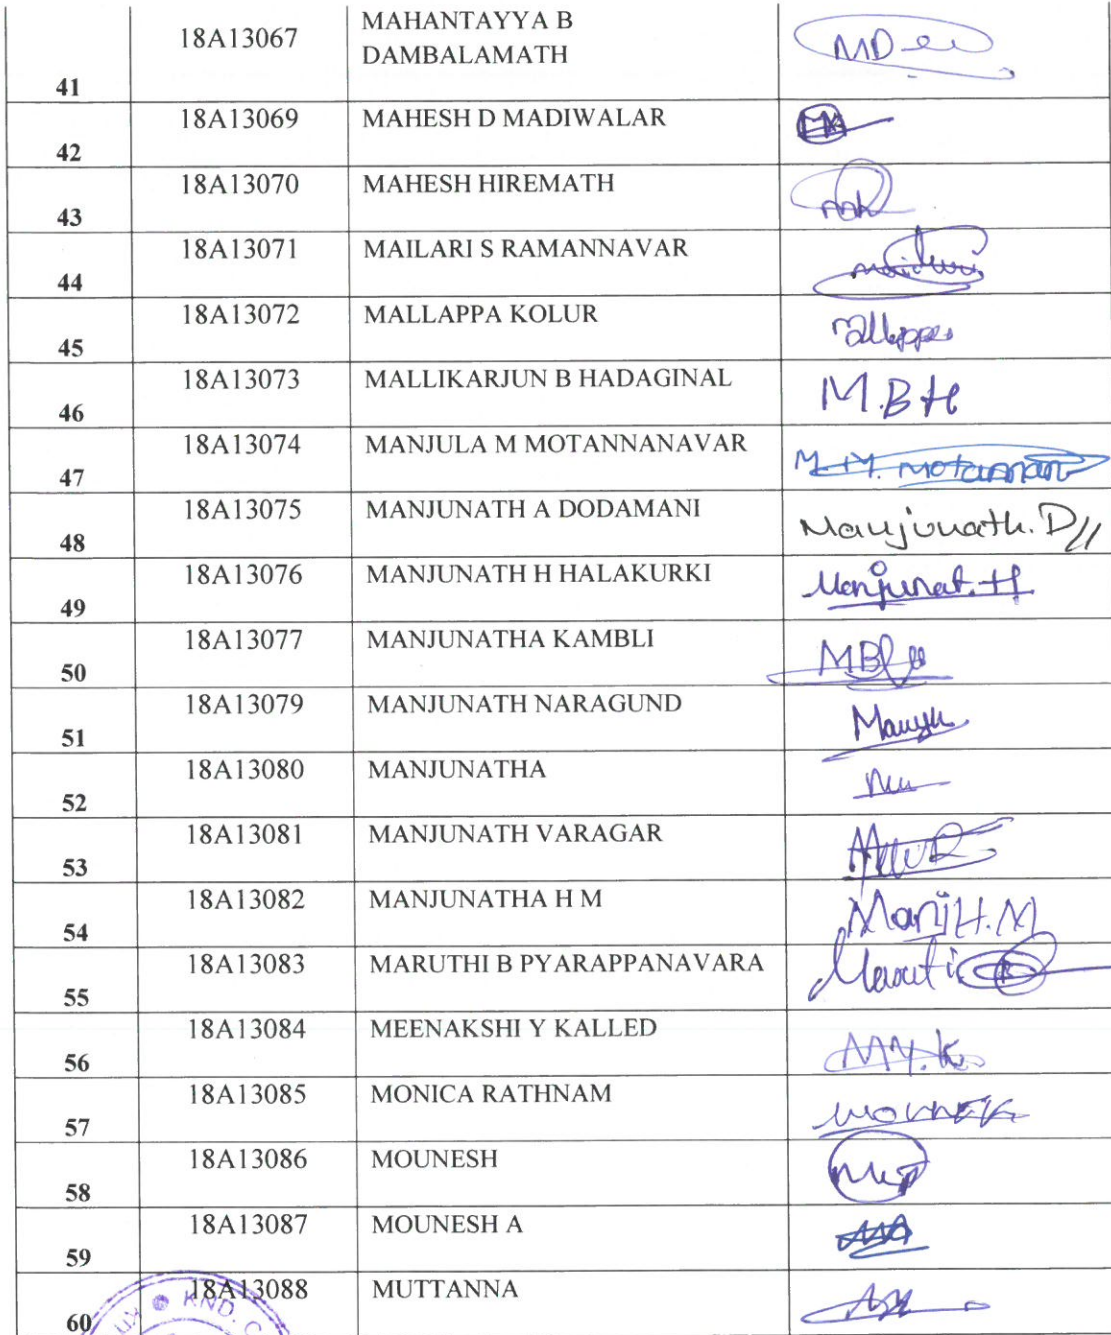 18A13067 MAHANTAYYA B
DAMBALAMATH MD
41
18A13069 MAHESH D MADIWALAR
42
18A13070 MAHESH HIREMATH
43
18A13071 MAILARI S RAMANNAVAR
44
18A13072 MALLAPPA KOLUR
45
18A13073 MALLIKARJUN B HADAGINAL M.B.H
46
18A13074 MANJULA M MOTANNANAVAR M.M.
47
18A13075 MANJUNATH A DODAMANI Manjunath.D//
48
18A13076 MANJUNATH H HALAKURKI Manjunat.H
49
18A13077 MANJUNATHA KAMBLI
50
18A13079 MANJUNATH NARAGUND
51
18A13080 MANJUNATHA
52
18A13081 MANJUNATH VARAGAR
53
18A13082 MANJUNATHA H M Manj H.M
54
18A13083 MARUTHI B PYARAPPANAVARA Maruti
55
18A13084 MEENAKSHI Y KALLED M.Y.K
56
18A13085 MONICA RATHNAM
57
18A13086 MOUNESH
58
18A13087 MOUNESH A
59
18A13088 MUTTANNA
60
KND. C